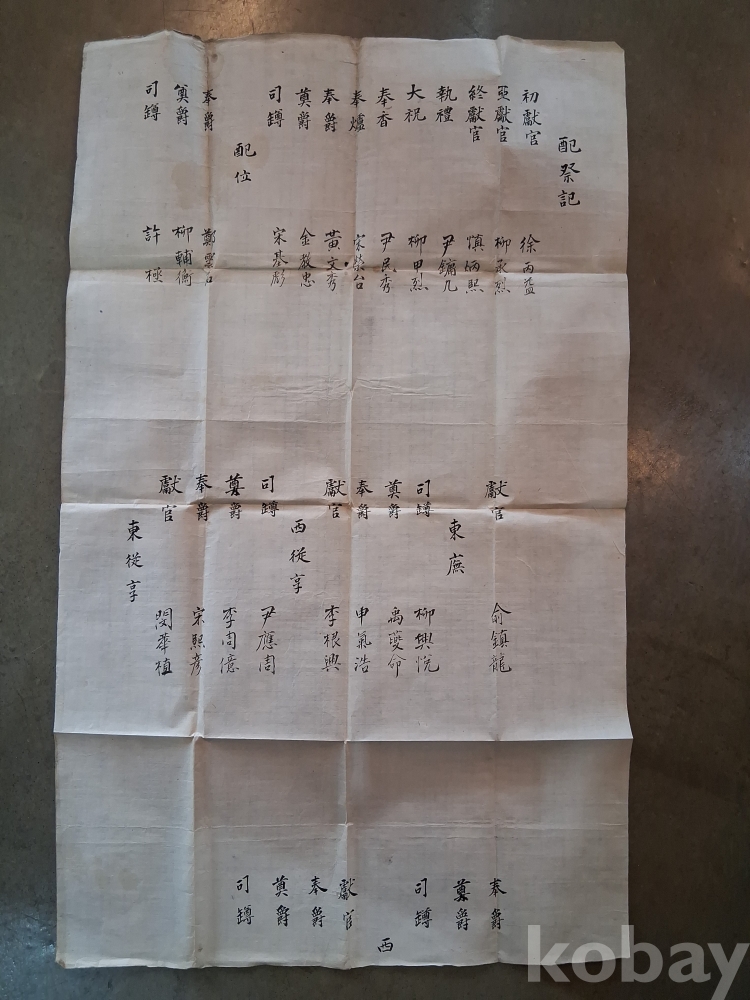 配祭記
初獻官 徐丙益
亞獻官 柳永烈
終獻官 愼炳熙
執禮 尹鏞几
大祝 柳甲烈
奉香 尹民秀
奉爐 宋榮台
奉爵 黃文秀
奠爵 金敎忠
司罇 宋基彭
配位
奉爵 鄭雲台
奠爵 柳輔衡
司罇 許極
獻官 兪鎭龍
東廡
司罇 柳興悅
奠爵 禹夔命
奉爵 申氣浩
獻官 李根興
西從享
司罇 尹應周
奠爵 李周億
奉爵 宋熙彦
獻官 閔華植
東從享
奉爵
奠爵
司罇
西
獻官
奉爵
奠爵
司罇
kobay